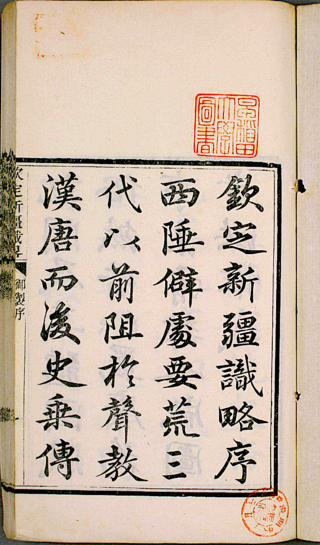 欽定新疆識略序
西陲僻處要荒三
代以前阻於聲教
漢唐而後史乘傳
欽定新疆識略
御製序
早稲田大學圖書